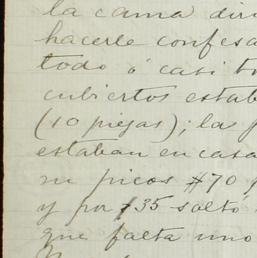 la cama dir
hacerle confesa
todo ó casi to
cubiertos estab
(10 piezas); la f
estaban en casa
su picos $70 
y por $35 saltó
que falta uno